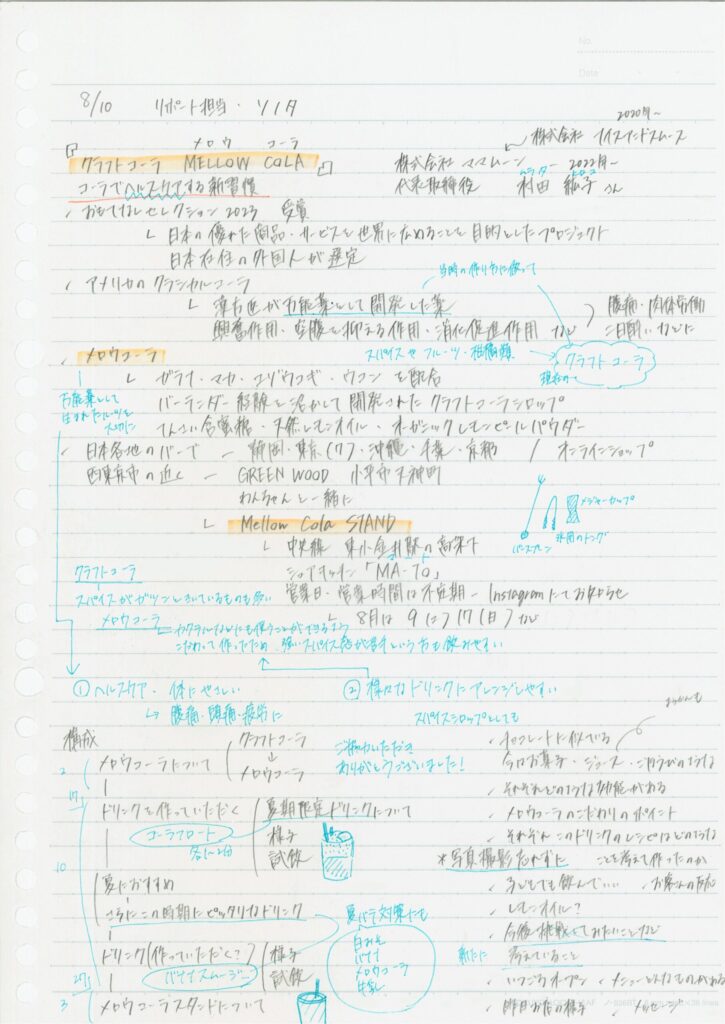 No.
Date
8/10 リポート担当・ソノダ
2020年〜
株式会社
メロウ コーラ
『クラフトコーラ MELLOW COLA』
株式会社 ママムーン − 2022年〜
コーラでヘルスケアする新習慣
代表取締役 村田 紘子さん
✓ おもてなしセレクション2023 受賞
└ 日本の優れた商品・サービスを世界に広めることを目的としたプロジェクト
日本在住の外国人が選定
✓ アメリカのクラシカルコーラ
当時の作り方に倣って
└ 薬剤師が万能薬として開発した薬
腹痛・肉体労働
興奮作用・空腹を抑える作用・消化促進作用 など
二日酔いなどに
✓ メロウコーラ
スパイスやフルーツ・柑橘類
クラフトコーラ
現在の〜
└ ガラナ・マカ・エゾウコギ・ウコン を配合
万能薬として
生まれたルーツを
大切に
バーテンダー経験を活かして開発されたクラフトコーラシロップ
てんさい含蜜糖・天然レモンオイル・オーガニックレモンピールパウダー
✓ 日本各地のバーで − 静岡・東京(17)・沖縄・千葉・京都 / オンラインショップ
西東京市の近く − GREEN WOOD 小平市天神町
わんちゃんと一緒に
メジャーカップ
バースプーン
氷用のトング
└ Mellow Cola STAND
└ 中央線 東小金井駅の高架下
クラフトコーラ
シェアキッチン「MA-TO」
スパイスがガツンときいているものも多い
営業日・営業時間は不定期 − Instagramにてお知らせ
└ 8月は 9 に) 17(日) など
メロウコーラ − カクテルなどにも使うことができるよう
こだわって作ったため 強いスパイス感が苦手という方も飲みやすい
① ヘルスケア・体にやさしい
② 様々なドリンクにアレンジしやすい
↳ 腹痛・頭痛・疲労に
スパイスシロップとしても
構成
クラフトコーラ
メロウコーラ
2
メロウコーラについて
ご協力いただき
ありがとうございました!
✓ チョコレートに似ている
✓ 今のお菓子・ジュース・
✓ それぞれどのような効能がある
17
ドリンクを作っていただく
コーラフロート
各1〜2分
夏期限定ドリンクについて
様子
試飲
✓ メロウコーラのこだわりのポイント
✓ それぞれこのドリンクのレシピはどのような
ことを考えて作ったのか
*写真撮影忘れずに
10
夏におすすめ
さらにこの時期にピッタリなドリンク
✓ 子どもでも飲んでいい
✓ お客さんの反応
✓ レモンオイル?
夏バテ対策にも
白みそ
バナナ
メロウコーラ
牛乳
✓ 今後 挑戦してみたいことなど
新たに 考えていること
ドリンク(作っていただく?)
バナナスムージー
様子
試飲
27
✓ いつごろオープン
✓ メニューどんなものがある
3
メロウコーラスタンドについて
✓ 昨日お店の様子
✓ メッセージ